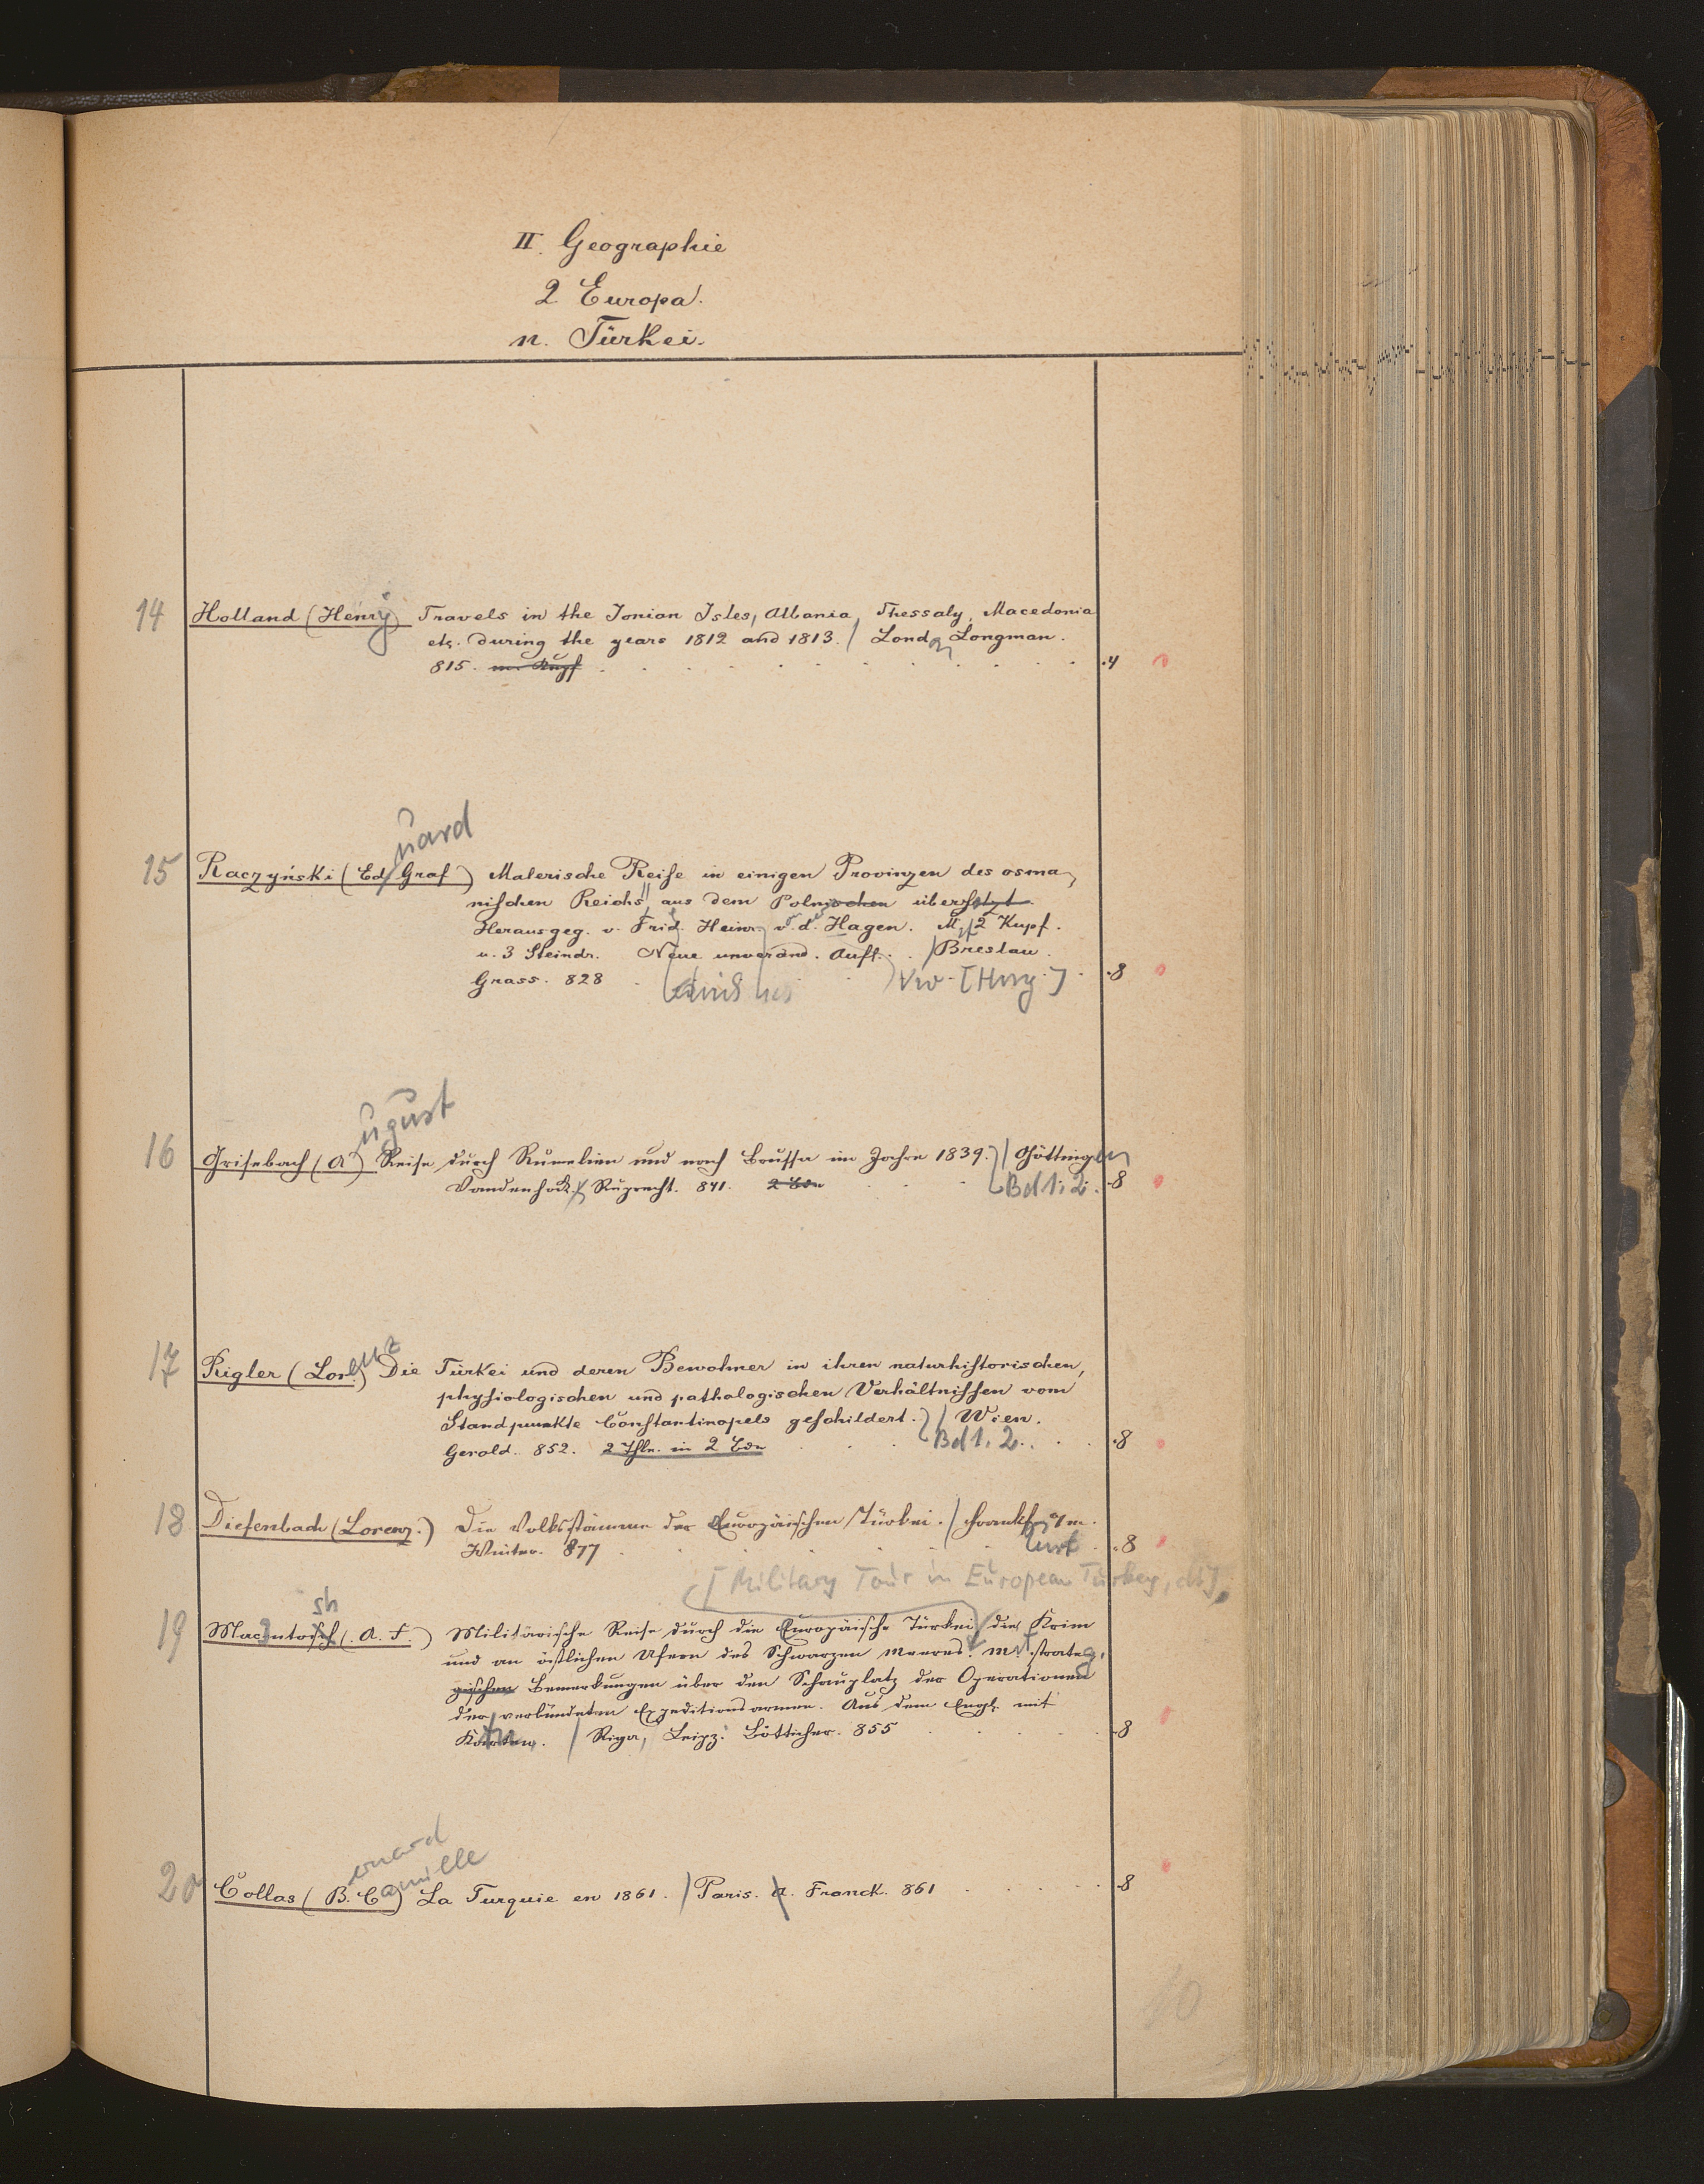 II. Geographie
2. Europa.
n. Türkei.
14 Holland (Henry) Travels in the Ionian Isles, Albania, Thessaly, Macedonia
etc. during the years 1812 and 1813. / London Longman.
815. m. Kupf . 4
uard
15 Raczyński (Ed. Graf) Malerische Reise in einigen Provinzen des osma-
nischen Reichs aus dem Polnischen übersetzt.
Herausgeg. v. Frid. Heinr. v. d. Hagen. M. 2 Kupf.
u. 3 Steindr. Neue unveränd. Aufl. / Breslau
Grass. 828 . 8
ugust
16 Grisebach (A) Reise durch Rumelien und nach Brussa im Jahre 1839. / Göttingen
Vandenhoek & Ruprecht. 841. 2 Bde Bd 1. 2. 8
17 Rigler (Lorenz) Die Türkei und deren Bewohner in ihren naturhistorischen,
physiologischen und pathologischen Verhältnissen vom
Standpunkte Constantinopels geschildert. / Wien.
Gerold. 852. 2 Thle. in 2 Bde Bd 1. 2. . 8
18 Diefenbach (Lorenz.) Die Volksstämme der Europäischen Türkei. / Frankf a/m.
furt
Winter. 877 . 8
[Military Tour in European Turkey, dt.]
sh
19 Macintosch (A. F.) Militärische Reise durch die Europäische Türkei, die Krim
und an östlichen Ufern des Schwarzen Meeres. Mit strateg.
gischen Bemerkungen über den Schauplatz der Operationen
der verbündeten Expeditionsarmee. Aus dem Engl. mit
Karten. / Riga, Leipz. Bötticher. 855 8
20 Collas (B. Camille) La Turquie en 1861. / Paris. A. Franck. 861 8
10